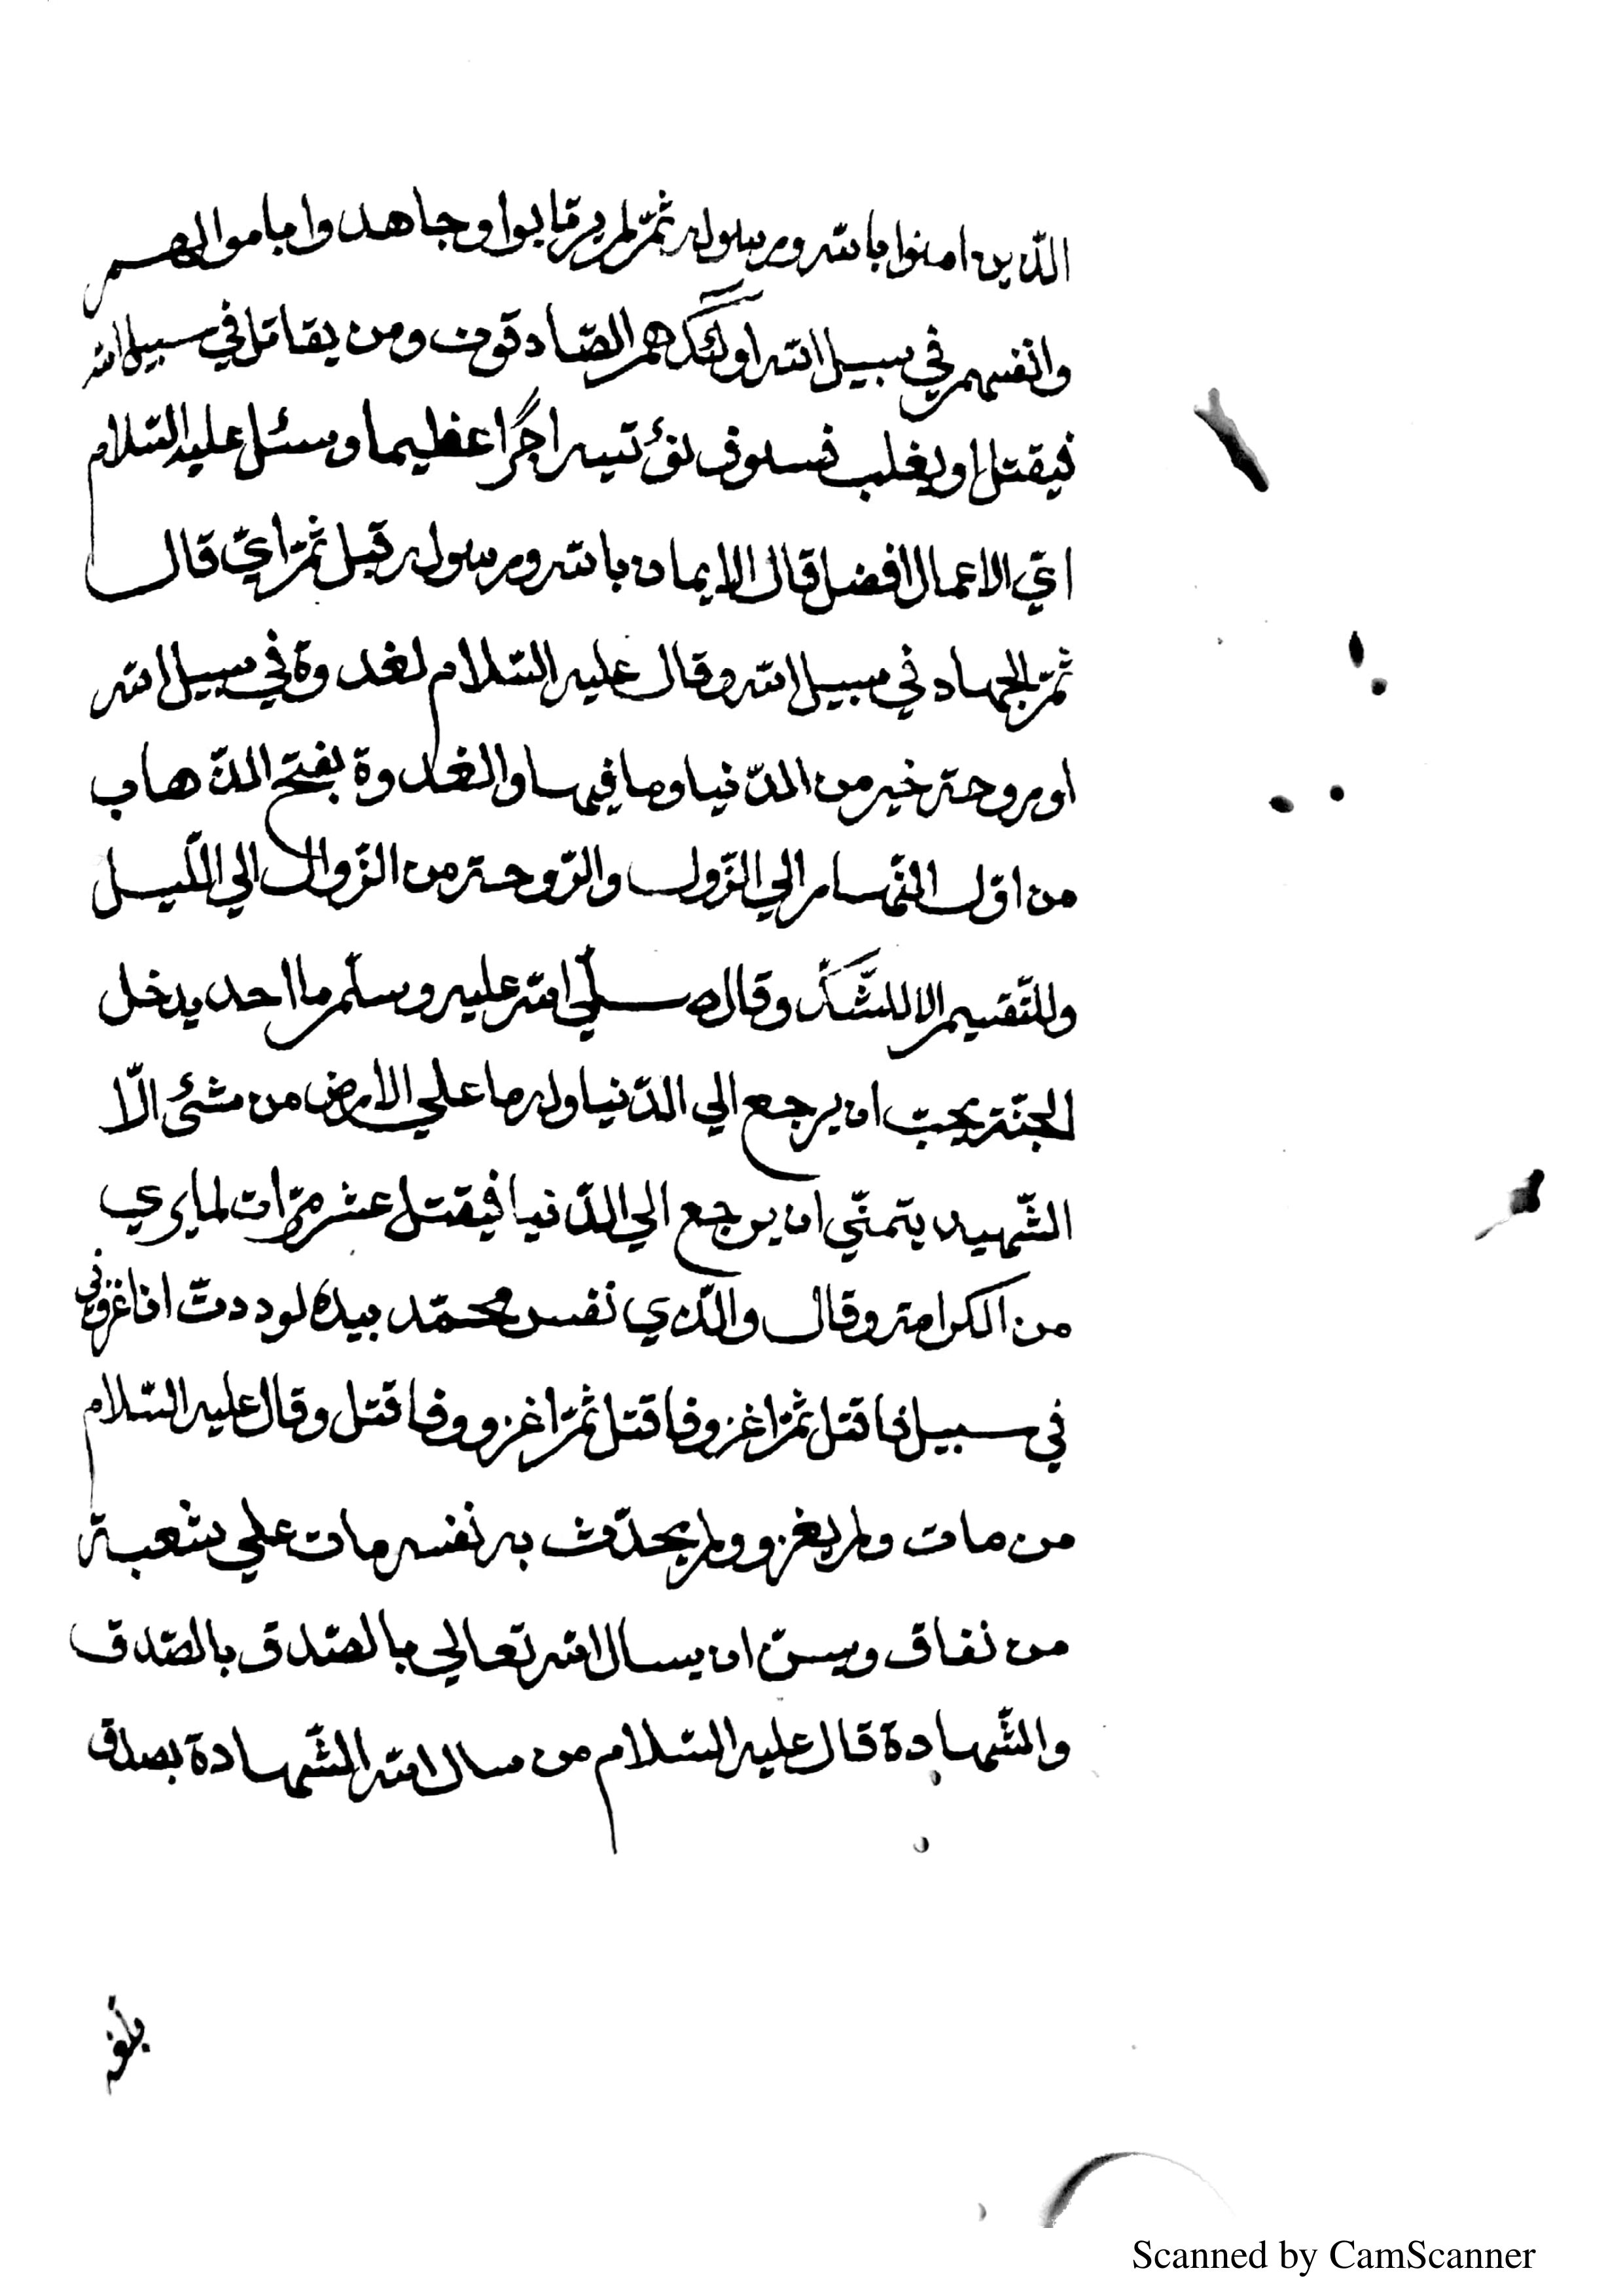 الّذين امنوا بالله ورسوله ثمّ لم يرتابوا وجاهدوا باموالهم
وانفسهم في سبيل الله اولئك هم الصّادقون ومن يقاتل في سبيل الله
فيقتل او يغلب فسوف نؤتيه اجرًا عظيما وسئل عليه السّلام
ايّ الاعمال افضل قال الايمان بالله ورسوله قيل ثمّ ايّ قال
ثمّ الجهاد في سبيل الله وقال عليه السّلام لغدوة في سبيل الله
او روحة خير من الدّنيا وما فيها والغدوة بفتح الذّهاب
من اوّل النّهار الي الزّول والرّوحة من الزّوال الي اللّيل
وللتّقسيم لا للشّكّ وقال صلّي الله عليه وسلّم ما احد يدخل
الجنّة يحبّ ان يرجع الي الدّنيا وله ما علي الارض من شئ الّا
الشّهيد يتمنّي ان يرجع الي الدّنيا فيقتل عشر مرّات لما يري
من الكرامة وقال والّذي نفس محمّد بيده لوددتّ ان اغزوني
في سبيل فاقتل ثمّ اغزو فاقتل ثمّ اغزو وفاقتل وقال عليه السّلام
من مات ولم يغزو ولم يحدّث به نفسه مات علي شعبة
من نفاق ويسنّ ان يسال الله تعالي بالصّدق بالصّدق
والشّهادة قال عليه السّلام من سال الله الشّهادة بصدق
بلغه
Scanned by CamScanner